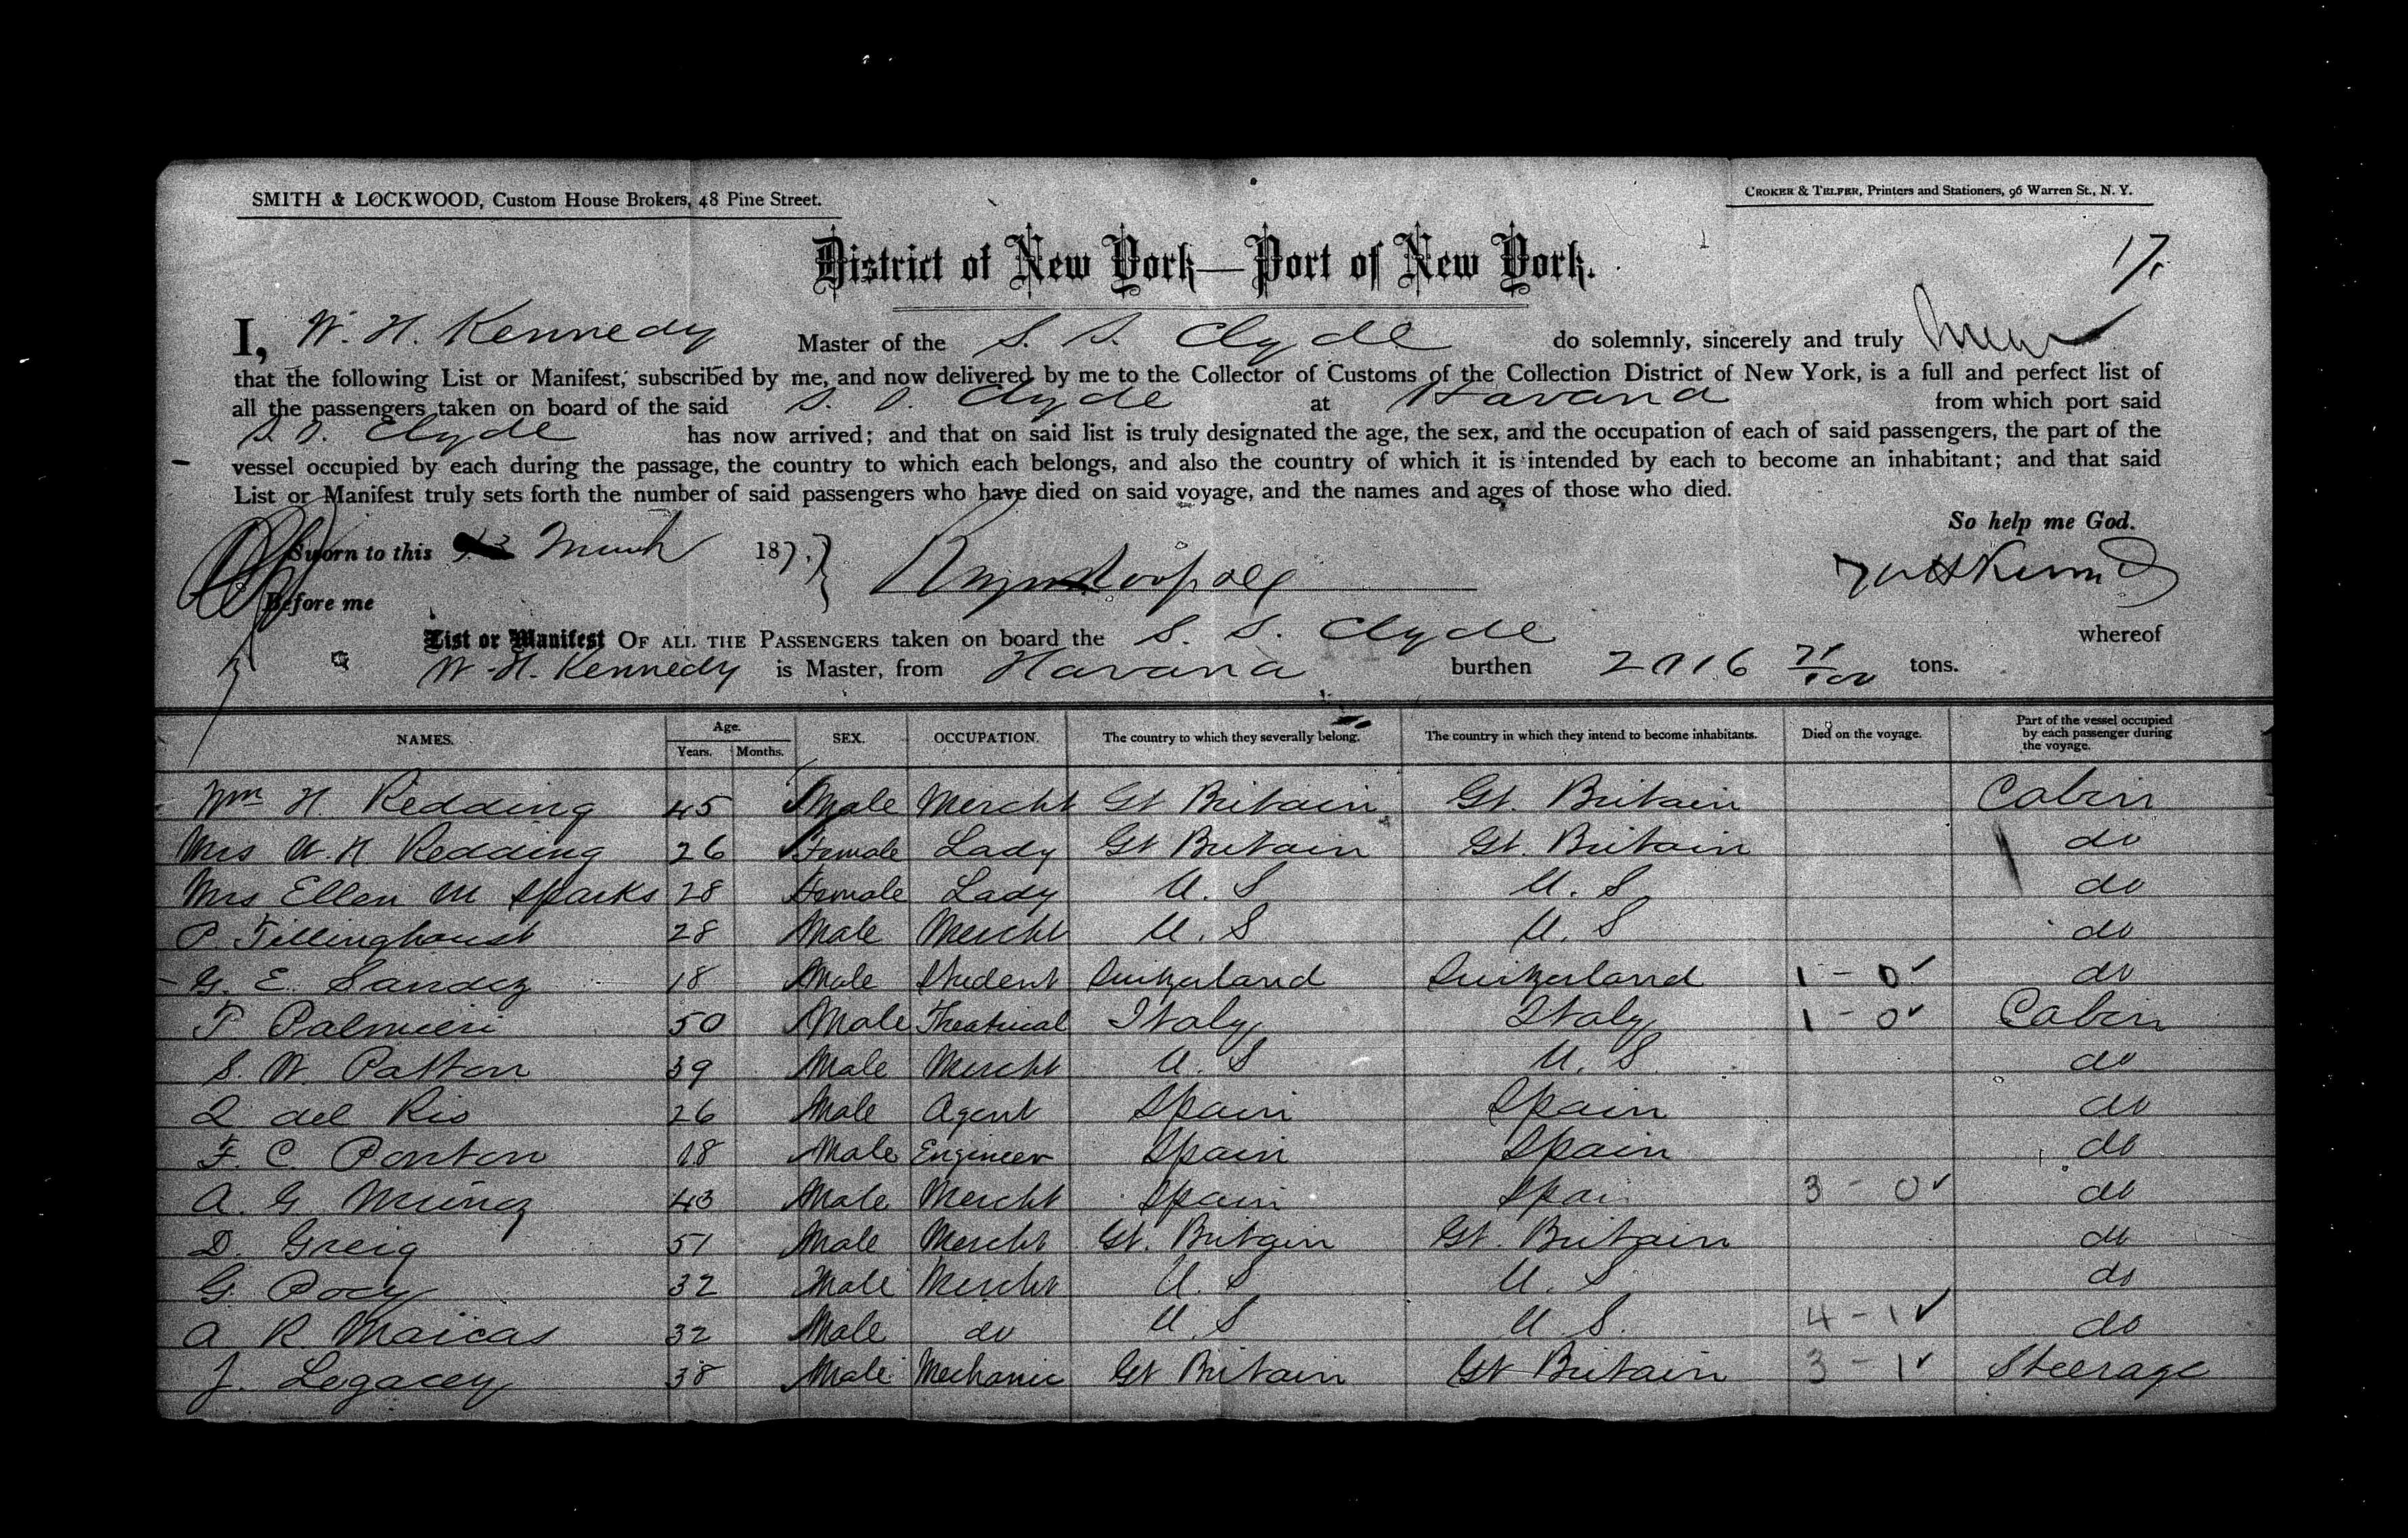 SMITH & LOCKWOOD, Custom House Brokers, 48 Pine Street.
CROKER & TELFER, Printers and Stationers, 96 Warren St., N. Y.
District of New York—Port of New York.
17.
I, W. H. Kennedy Master of the S. S. Clyde do solemnly, sincerely and truly
that the following List or Manifest, subscribed by me, and now delivered by me to the Collector of Customs of the Collection District of New York, is a full and perfect list of
all the passengers taken on board of the said S. S. Clyde at Havana from which port said
S. S. Clyde has now arrived; and that on said list is truly designated the age, the sex, and the occupation of each of said passengers, the part of the
vessel occupied by each during the passage, the country to which each belongs, and also the country of which it is intended by each to become an inhabitant; and that said
List or Manifest truly sets forth the number of said passengers who have died on said voyage, and the names and ages of those who died.
So help me God.
Sworn to this March 187
W H Kennedy
Before me
List or Manifest OF ALL THE PASSENGERS taken on board the S. S. Clyde whereof
W. H. Kennedy is Master, from Havana burthen 2716 71/100 tons.
NAMES. Age. Years. Months. SEX. OCCUPATION. The country to which they severally belong. The country in which they intend to become inhabitants. Died on the voyage. Part of the vessel occupied by each passenger during the voyage.
Wm H Redding 45 Male Mercht Gt Britain Gt. Britain Cabin
Mrs W. H Redding 26 Female Lady Gt Britain Gt. Britain do
Mrs Ellen M Sparks 28 Female Lady U. S U. S do
P Tillinghaust 28 Male Mercht U. S U. S do
G. E. Sandoz 18 Male Student Switzerland Switzerland 1 - 0 do
P Palmieri 50 Male Theatrical Italy Italy 1 - 0 Cabin
S. W. Patton 39 Male Mercht U. S U. S do
Q del Rio 26 Male Agent Spain Spain do
F. C. Ponton 18 Male Engineer Spain Spain do
A. G Munoz 43 Male Mercht Spain Spai 3 - 0 do
D. Greig 51 Male Mercht Gt. Britain Gt. Britain do
G. Pody 32 Male Mercht U. S U. S. do
A R. Maicas 32 Male do U. S U S. 4 - 1 do
J. Legacey 38 Male Mechanic Gt Britain Gt Britain 3 - 1 Steerage